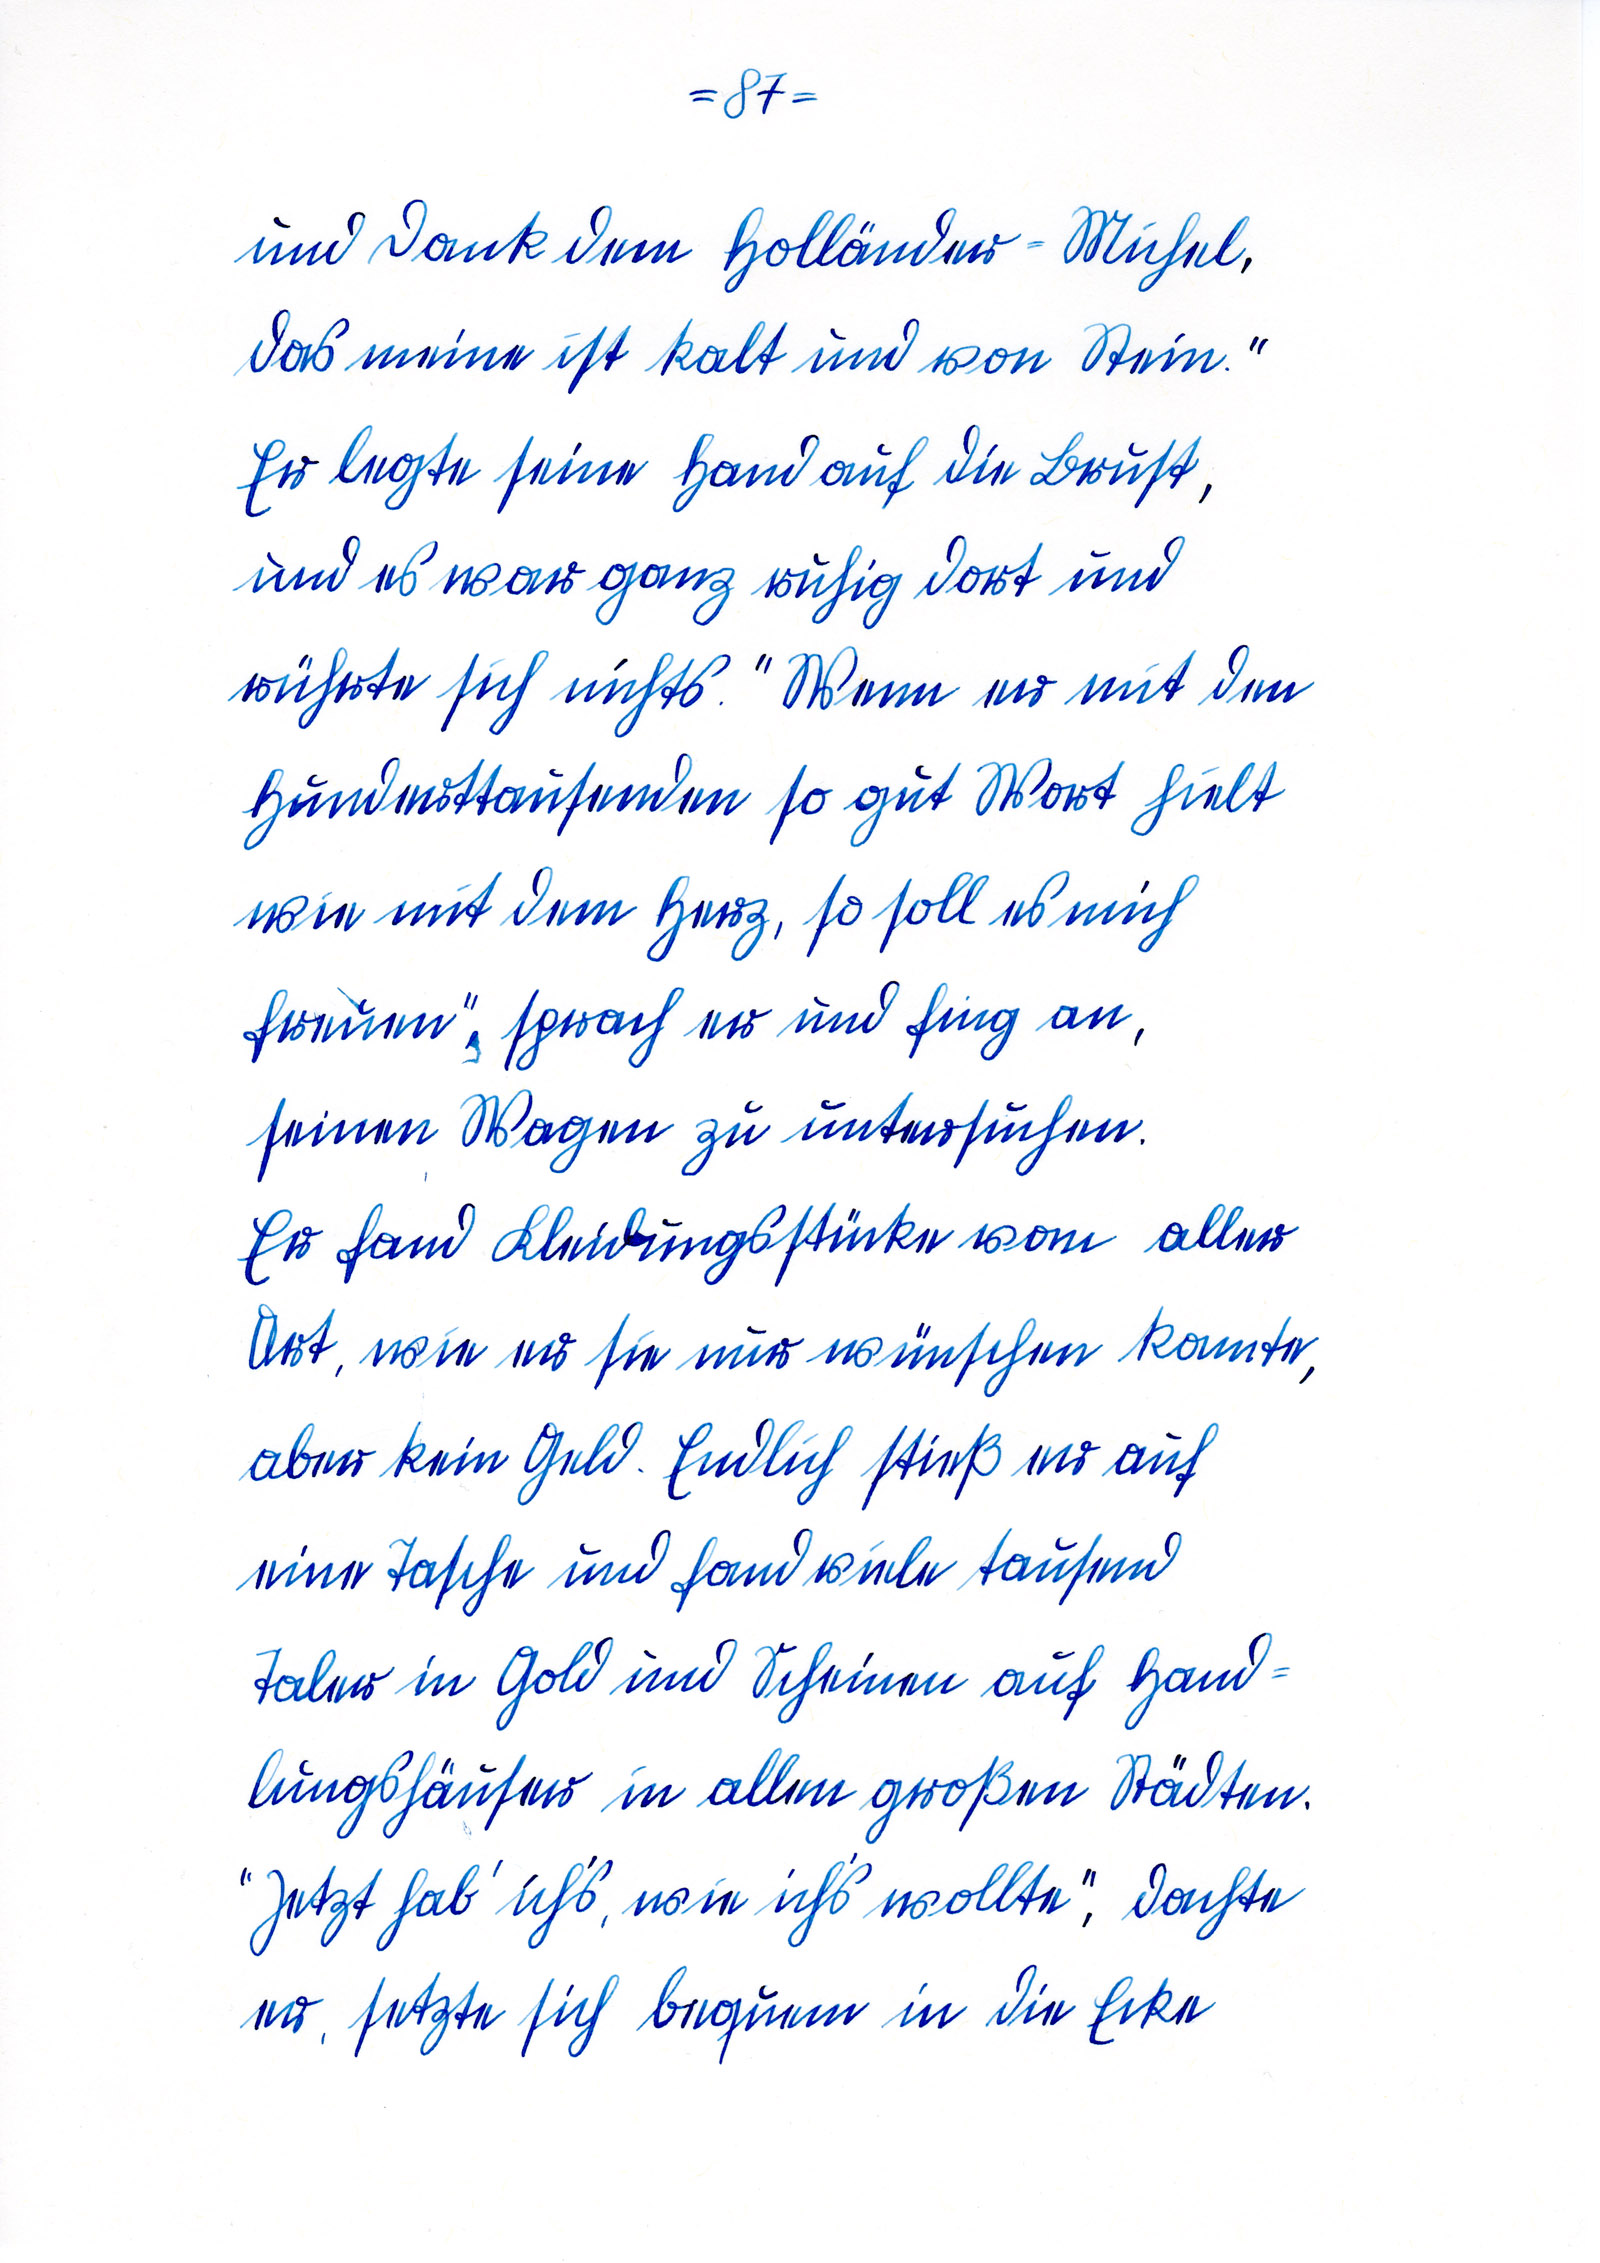 =87=
und Dank dem Holländer=Michel,
das meine ist kalt und von Stein."
Er legte seine Hand auf die Brust,
und es war ganz ruhig dort und
rührte sich nichts. "Wenn er mit den
Hunderttausenden so gut Wort hielt
wie mit dem Herz, so soll es mich
freuen", sprach er und fing an,
seinen Wagen zu untersuchen.
Er fand Kleidungsstücke von aller
Art, wie er sie nur wünschen konnte,
aber kein Geld. Endlich stieß er auf
eine Tasche und fand viele tausend
Taler in Gold und Scheinen auf Hand=
lungshäuser in allen großen Städten.
"Jetzt hab' ich's, wie ich's wollte", dachte
er, setzte sich bequem in die Ecke